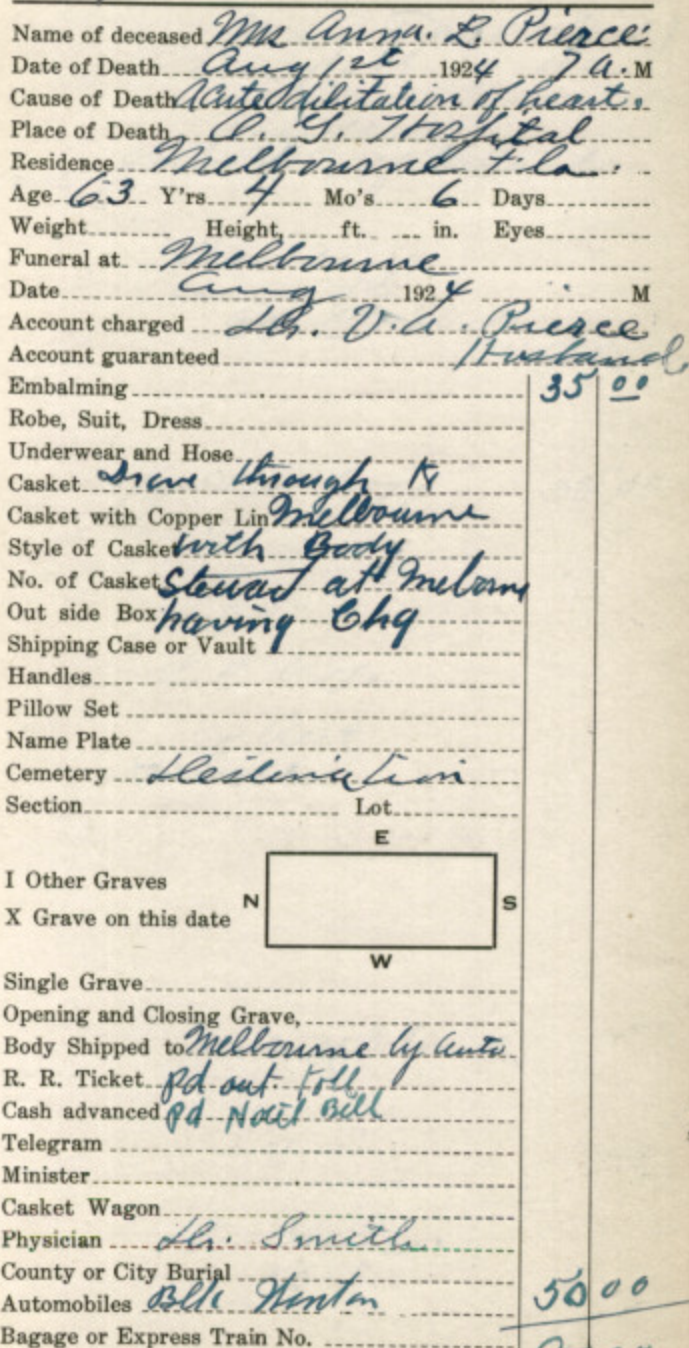 Name of deceased Mrs Anna. L. Pierce
Date of Death Aug 1st 1924 7 a. M
Cause of Death Acute dilitation of heart.
Place of Death O. G. Hospital
Residence Melbourne Fla.
Age 63 Y'rs 4 Mo's 6 Days
Weight Height, ft. in. Eyes
Funeral at Melbourne
Date Aug 1924 M
Account charged Dr. V. A. Pierce
Account guaranteed Husband
Embalming 35 00
Robe, Suit, Dress
Underwear and Hose
Casket Drove through
Casket with Copper Lin Melbourne
Style of Casket with Body
No. of Casket Steward at Melborne
Out side Box having Chg
Shipping Case or Vault
Handles
Pillow Set
Name Plate
Cemetery Destination
Section Lot
E
I Other Graves
N S
X Grave on this date
W
Single Grave
Opening and Closing Grave,
Body Shipped to Melbourne by Auto
R. R. Ticket Pd out Toll
Cash advanced Pd Hotel Bill
Telegram
Minister
Casket Wagon
Physician Dr. Smith
County or City Burial
Automobiles 50 00
Bagage or Express Train No.